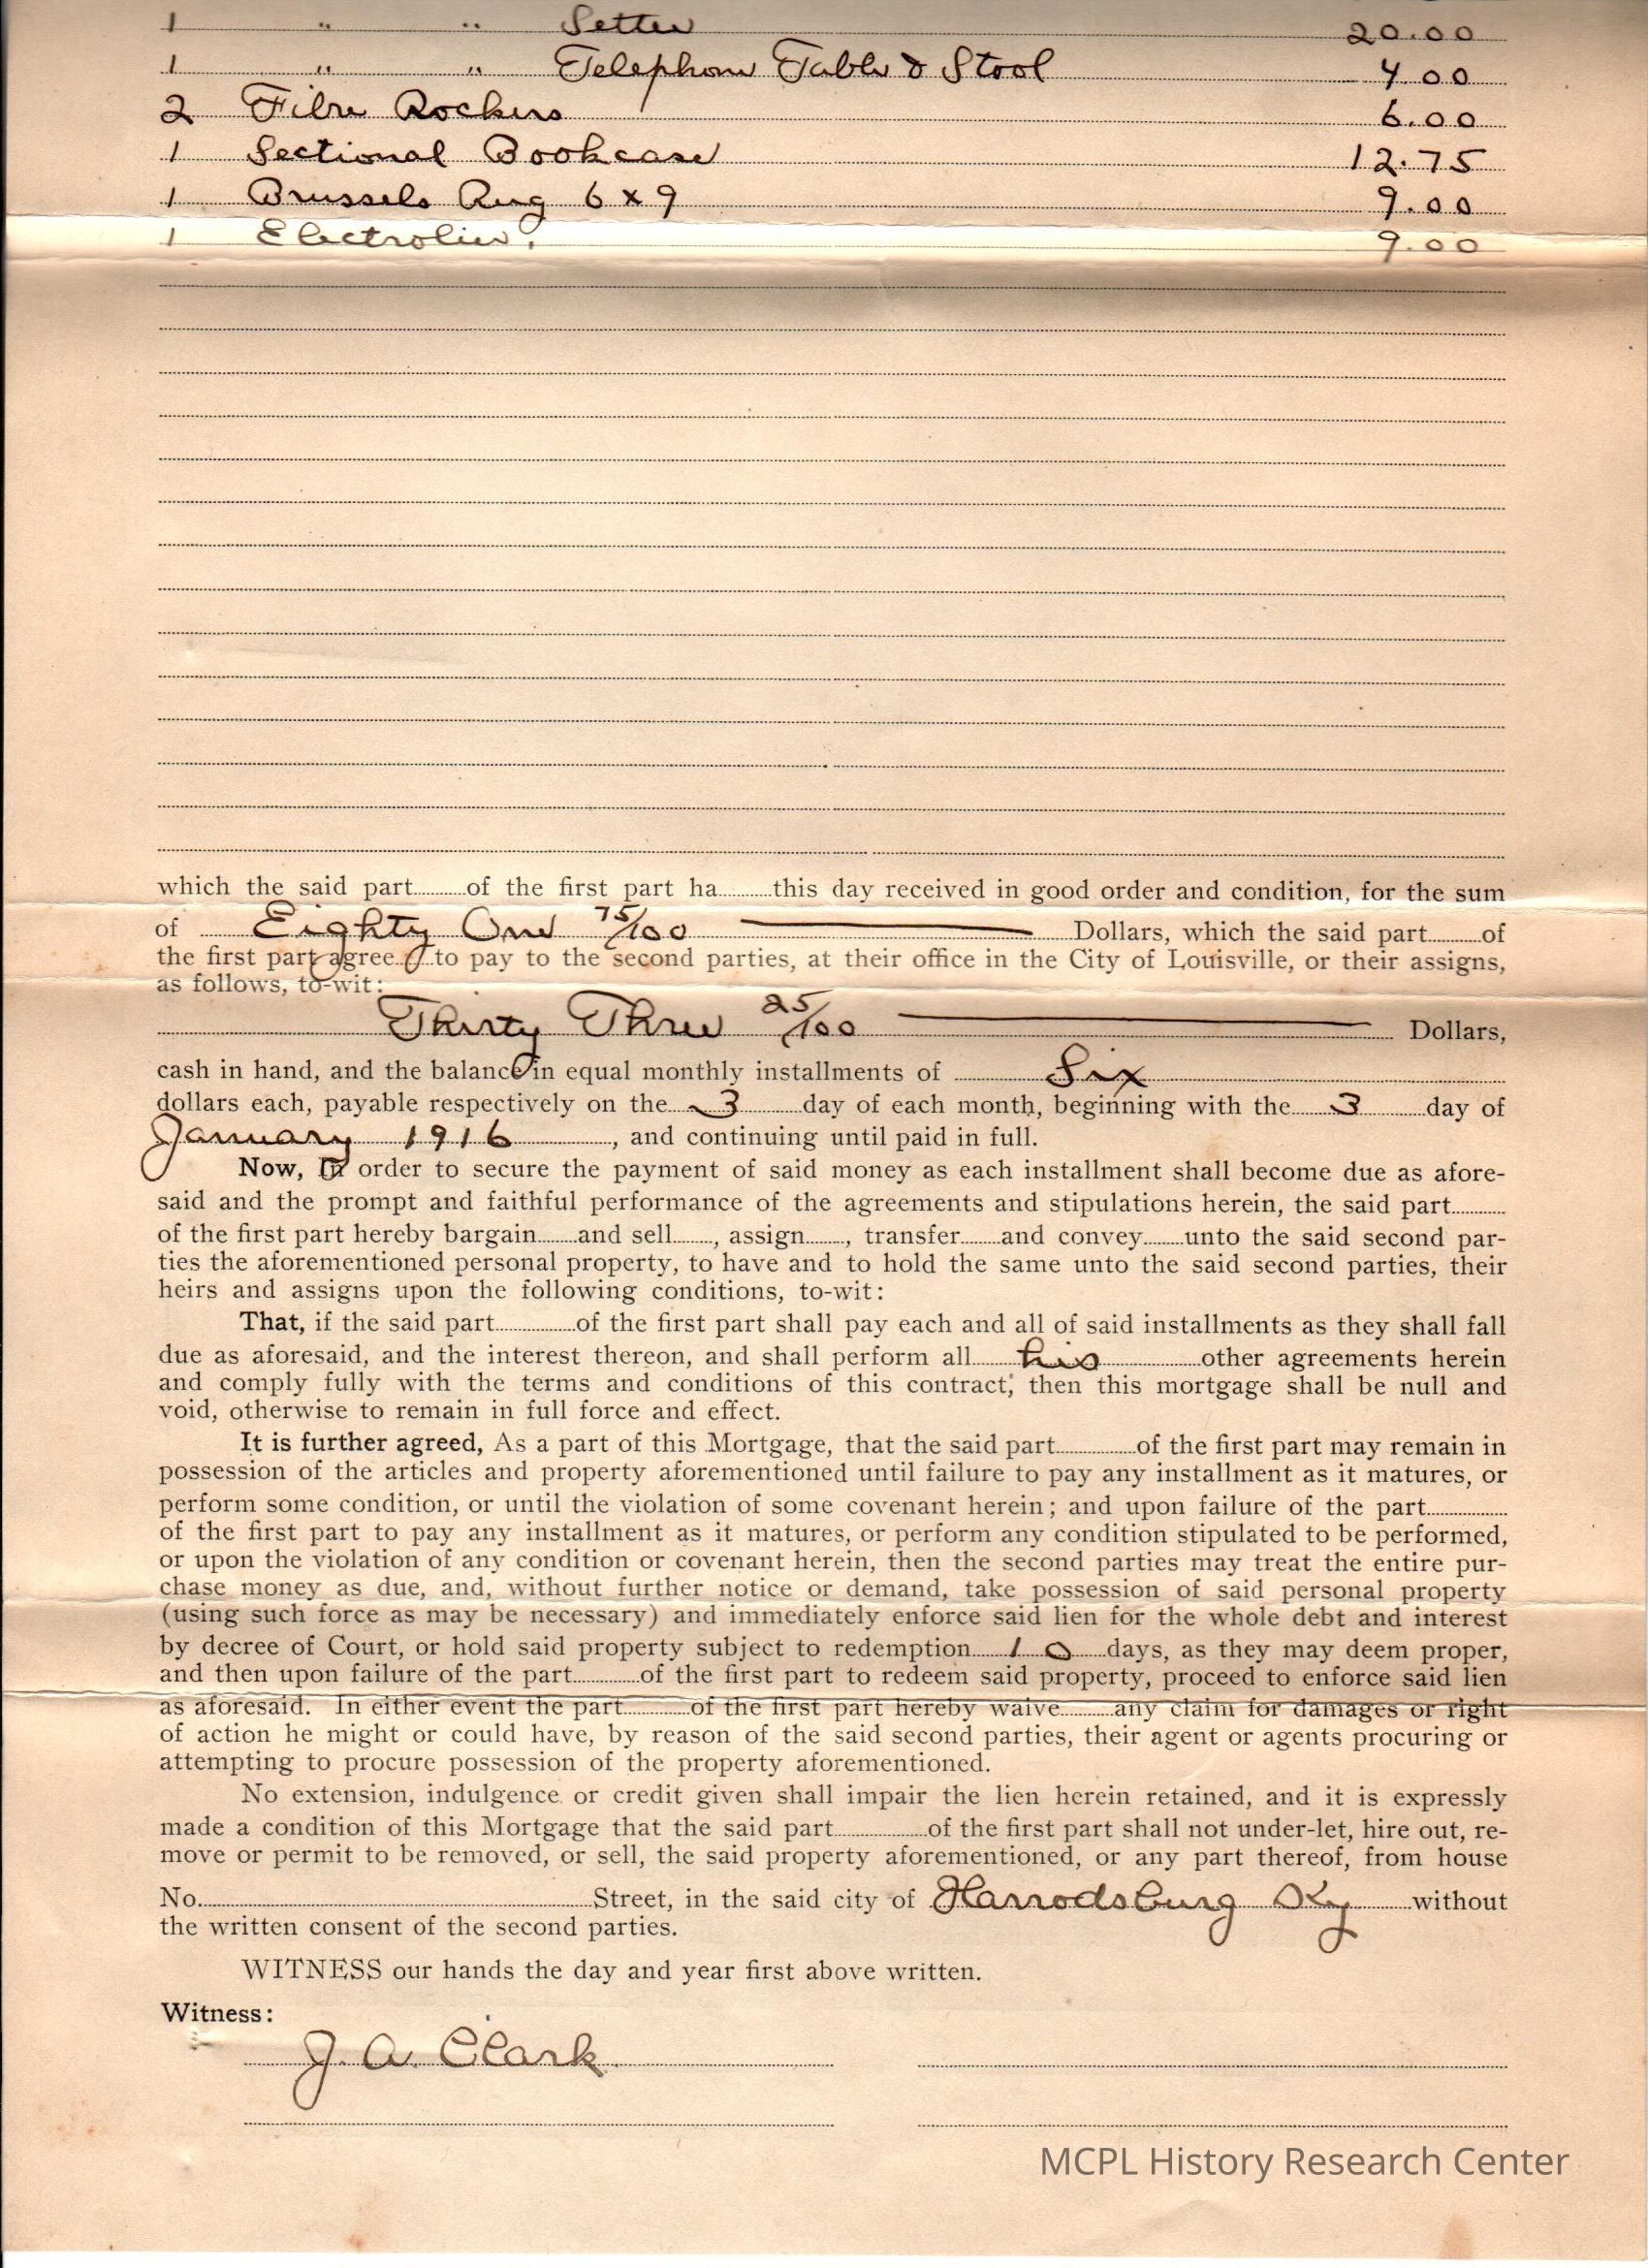 1 " " Settee 20.00
1 " " Telephone Table & Stool 4.00
2 Fibre Rockers 6.00
1 Sectional Bookcase 12.75
1 Brussels Rug 6 x 9 9.00
1 Electrolier. 9.00
which the said part of the first part ha this day received in good order and condition, for the sum
of Eighty One 75/100 Dollars, which the said part of
the first part agree to pay to the second parties, at their office in the City of Louisville, or their assigns,
as follows, to-wit:
Thirty Three 25/100 Dollars,
cash in hand, and the balance in equal monthly installments of Six
dollars each, payable respectively on the 3 day of each month, beginning with the 3 day of
January 1916, and continuing until paid in full.
Now, In order to secure the payment of said money as each installment shall become due as afore-
said and the prompt and faithful performance of the agreements and stipulations herein, the said part
of the first part hereby bargain and sell, assign, transfer and convey unto the said second par-
ties the aforementioned personal property, to have and to hold the same unto the said second parties, their
heirs and assigns upon the following conditions, to-wit:
That, if the said part of the first part shall pay each and all of said installments as they shall fall
due as aforesaid, and the interest thereon, and shall perform all his other agreements herein
and comply fully with the terms and conditions of this contract, then this mortgage shall be null and
void, otherwise to remain in full force and effect.
It is further agreed, As a part of this Mortgage, that the said part of the first part may remain in
possession of the articles and property aforementioned until failure to pay any installment as it matures, or
perform some condition, or until the violation of some covenant herein; and upon failure of the part
of the first part to pay any installment as it matures, or perform any condition stipulated to be performed,
or upon the violation of any condition or covenant herein, then the second parties may treat the entire pur-
chase money as due, and, without further notice or demand, take possession of said personal property
(using such force as may be necessary) and immediately enforce said lien for the whole debt and interest
by decree of Court, or hold said property subject to redemption 10 days, as they may deem proper,
and then upon failure of the part of the first part to redeem said property, proceed to enforce said lien
as aforesaid. In either event the part of the first part hereby waive any claim for damages or right
of action he might or could have, by reason of the said second parties, their agent or agents procuring or
attempting to procure possession of the property aforementioned.
No extension, indulgence or credit given shall impair the lien herein retained, and it is expressly
made a condition of this Mortgage that the said part of the first part shall not under-let, hire out, re-
move or permit to be removed, or sell, the said property aforementioned, or any part thereof, from house
No. Street, in the said city of Harrodsburg Ky without
the written consent of the second parties.
WITNESS our hands the day and year first above written.
Witness:
J. A. Clark
MCPL History Research Center